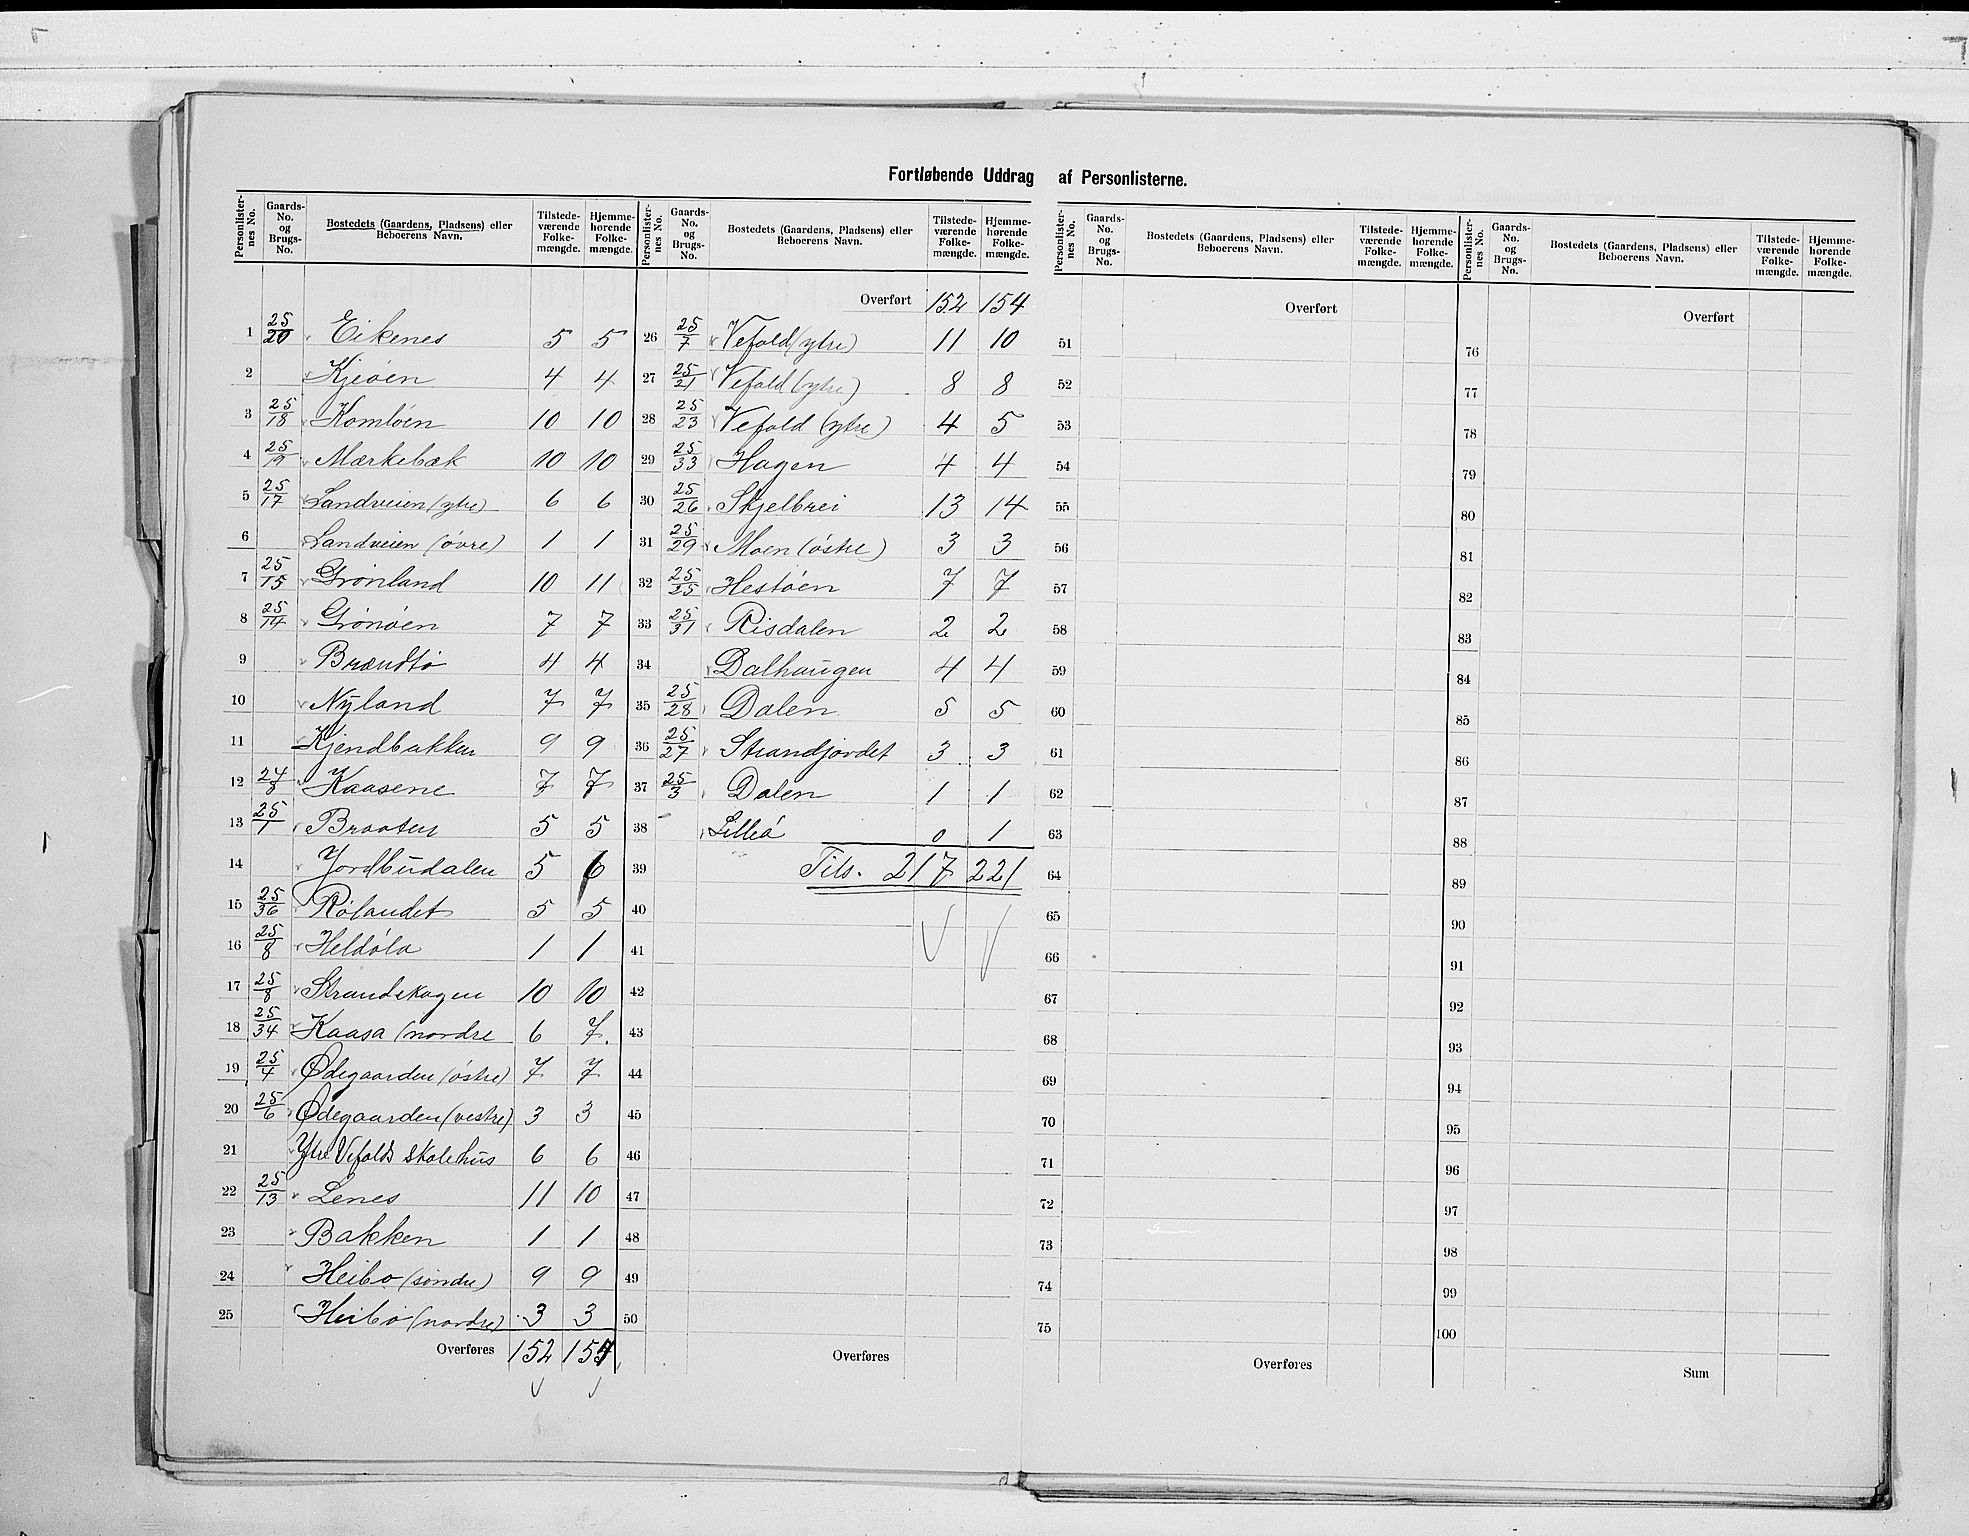 Fortløbende Uddrag af Personlisterne.
Personlister-nes No. | Gaards-No. og Brugs-No. | Bostedets (Gaardens, Pladsens) eller Beboerens Navn. | Tilstede-værende Folke-mængde. | Hjemme-hørende Folke-mængde.
1 25/20 Eikenes 5 5
2 Kjeøen 4 4
3 25/18 Komløen 10 10
4 25/19 Mærkebæk 10 10
5 25/17 Landveien (ytre) 6 6
6 Landveien (øvre) 1 1
7 25/15 Grønland 10 11
8 25/14 Grønøen 7 7
9 Brændtø 4 4
10 Nyland 7 7
11 Kjendbakken 9 9
12 24/8 Kaasene 7 7
13 25/1 Braaten 5 5
14 Jordbudalen 5 6
15 25/36 Rølandet 5 5
16 25/8 Heldøla 1 1
17 25/8 Strandskogen 10 10
18 25/34 Kaasa (nordre 6 7.
19 25/4 Ødegaarden (østre) 7 7
20 25/6 Ødegaarden (vestre) 3 3
21 Ytre Vefalds skolehus 6 6
22 25/13 Lenes 11 10
23 Bakken 1 1
24 Heibø (søndre) 9 9
25 Heibø (nordre) 3 3
Overføres 152 154
Personlister-nes No. | Gaards-No. og Brugs-No. | Bostedets (Gaardens, Pladsens) eller Beboerens Navn. | Tilstede-værende Folke-mængde. | Hjemme-hørende Folke-mængde.
Overført 152 154
26 25/7 Vefald (ytre) 11 10
27 25/21 Vefald (ytre) 8 8
28 25/23 Vefald (ytre) 4 5
29 25/33 Hagen 4 4
30 25/26 Skjelbrei 13 14
31 25/29 Moen (østre) 3 3
32 25/25 Hestøen 7 7
33 25/31 Risdalen 2 2
34 Dalhaugen 4 4
35 25/28 Dalen 5 5
36 25/27 Strandjordet 3 3
37 25/3 Dalen 1 1
38 Lilleø 0 1
39 Tils. 217 221
40
41
42
43
44
45
46
47
48
49
50
Overføres
Personlister-nes No. | Gaards-No. og Brugs-No. | Bostedets (Gaardens, Pladsens) eller Beboerens Navn. | Tilstede-værende Folke-mængde. | Hjemme-hørende Folke-mængde.
Overført
51
52
53
54
55
56
57
58
59
60
61
62
63
64
65
66
67
68
69
70
71
72
73
74
75
Overføres
Personlister-nes No. | Gaards-No. og Brugs-No. | Bostedets (Gaardens, Pladsens) eller Beboerens Navn. | Tilstede-værende Folke-mængde. | Hjemme-hørende Folke-mængde.
Overført
76
77
78
79
80
81
82
83
84
85
86
87
88
89
90
91
92
93
94
95
96
97
98
99
100
Sum